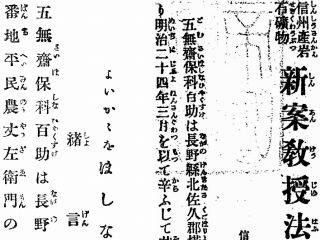 信州産岩
石礦物
新案教授法
信
五無齋保科百助は長野縣北佐久郡
明治二十四年三月を以て辛ふじて
よいかゝをほしな
緒言
五無齋保科百助は長野
番地平民農丈左衛門の